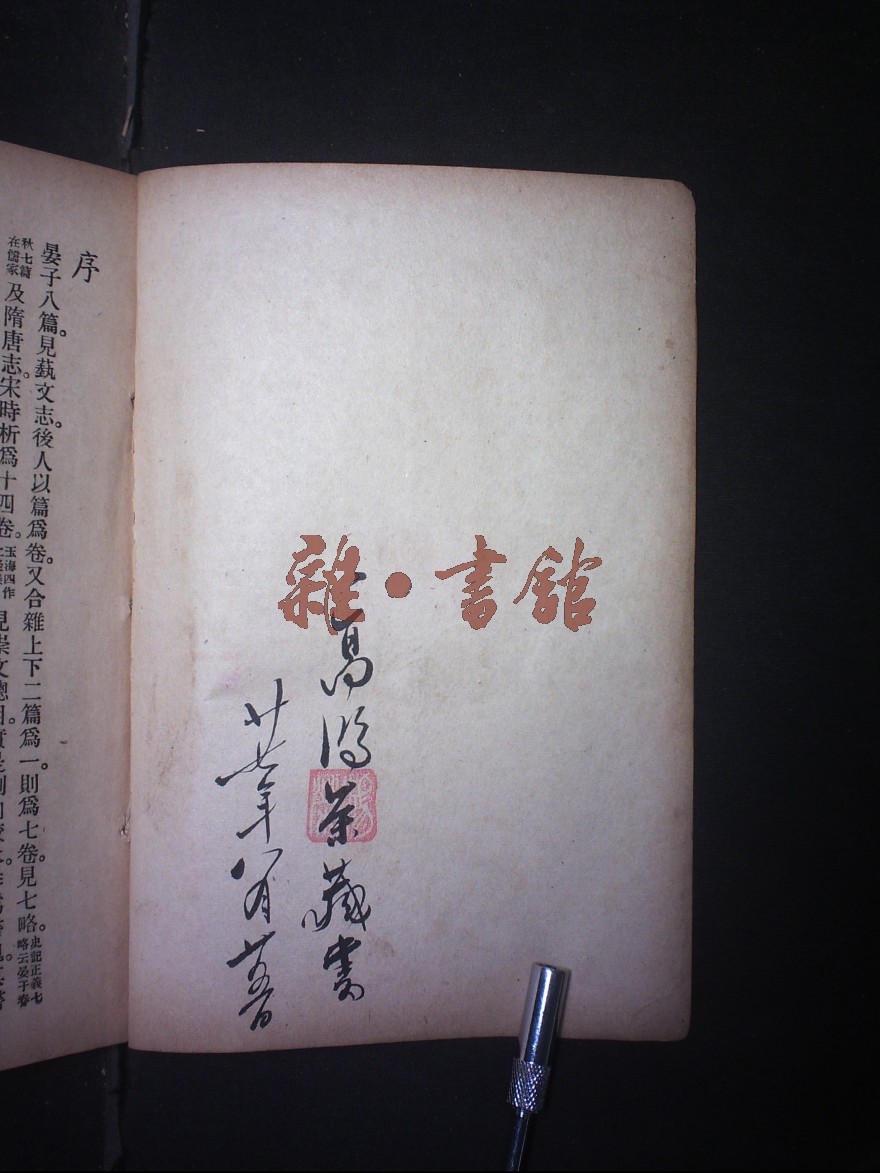 雜·書館
高鴻業藏書
廿七年八月廿五日
序
晏子八篇。見蓺文志。後人以篇爲卷。又合雜上下二篇爲一。則爲七卷。見七略。史記正義七略云晏子春
秋七篇在儒家及隋唐志。宋時析爲十四卷。玉海四作見崇文總目。實是劉向校本